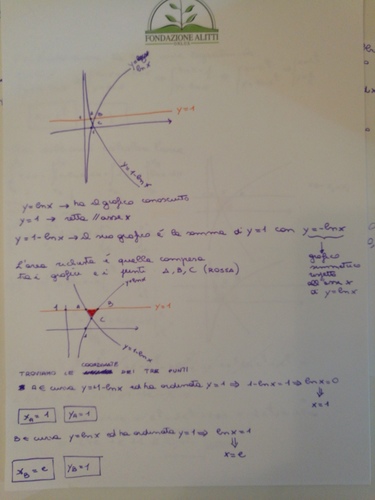 FONDAZIONE ALITTI
y=lnx
y=1
y=1-lnx
y=lnx → ha il grafico conosciuto
y=1 → retta // asse x
y=1-lnx → il suo grafico è la somma di y=1 con y=-lnx
grafico
simmetrico
rispetto
all'asse x
di y=lnx
L'area richiesta è quella compresa
tra i grafici e i punti A, B, C (ROSSA)
y=lnx
1
A
B
y=1
C
y=1-lnx
TROVIAMO LE COORDINATE DEI TRE PUNTI
A ∈ curva y=1-lnx ed ha ordinata y=1 ⇒ 1-lnx=1 ⇒ lnx=0
⇓
x=1
xA=1 yA=1
B ∈ curva y=lnx ed ha ordinata y=1 ⇒ lnx=1
⇓
x=e
xB=e yB=1